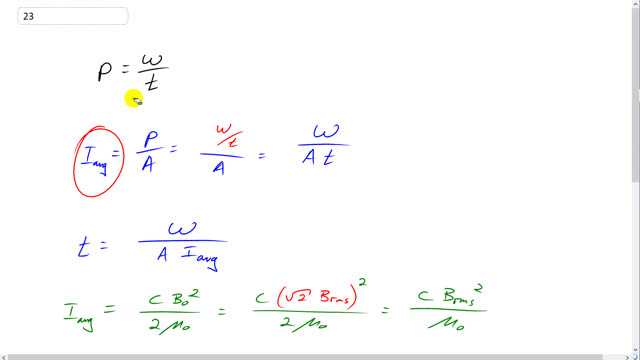 23
P = W/t
I_avg = P/A = (W/t)/A = W/(A t)
t = W/(A I_avg)
I_avg = c B₀²/(2 μ₀) = c (√2 B_rms)²/(2 μ₀) = c B_rms²/μ₀